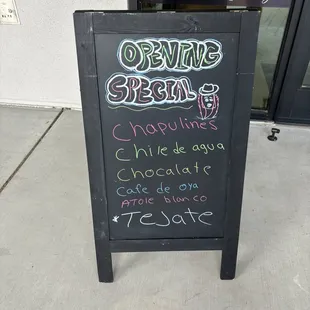 OPENING
SPECIAL
Chapulines
Chile de agua
Chocalate
Cafe de oya
ATole blanco
*TeJate